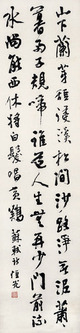 山下蘭芽短浸溪松間沙路淨無泥瀟瀟
暮雨子規啼誰道人生無再少門前流
水尚能西休將白髮唱黃雞 蘇軾詞